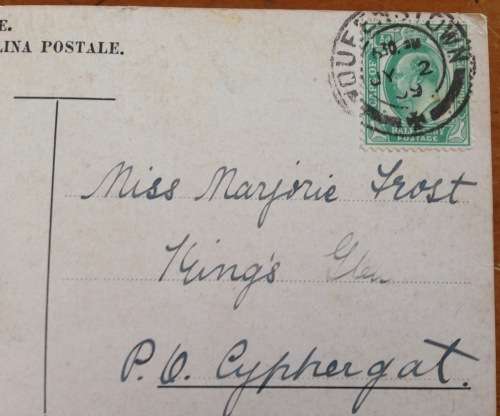 E.
LINA POSTALE.
QUEENSTOWN
2
09
CAPE OF
HALF PENNY
POSTAGE
Miss Marjorie Frost
King's Glen
P.O. Cyphergat.